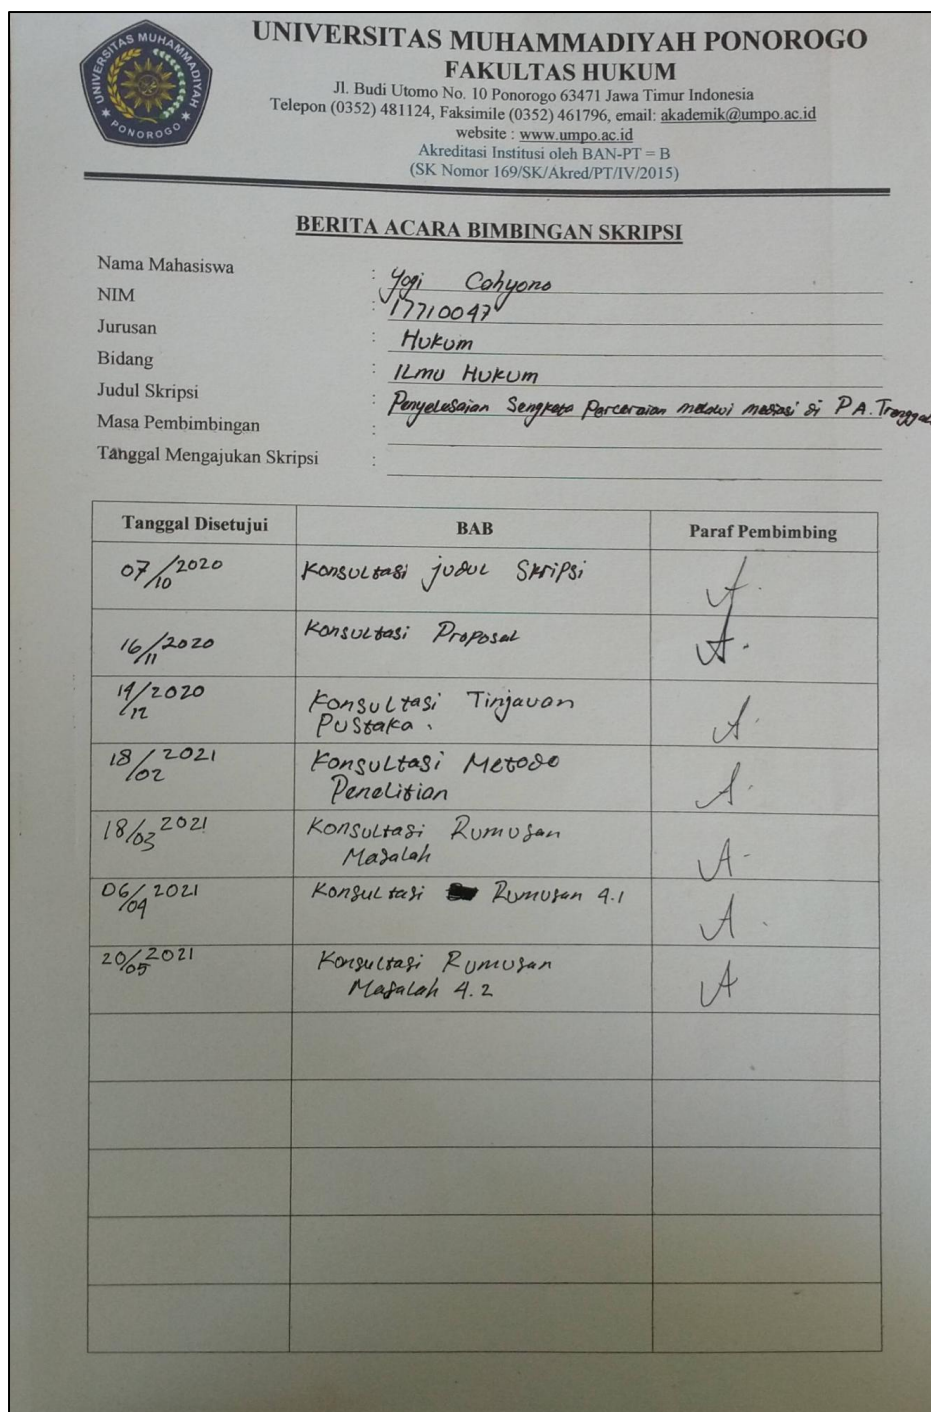 UNIVERSITAS MUHAMMADIYAH PONOROGO
UNIVERSITAS MUHAMMADIYAH PONOROGO
FAKULTAS HUKUM
Jl. Budi Utomo No. 10 Ponorogo 63471 Jawa Timur Indonesia
Telepon (0352) 481124, Faksimile (0352) 461796, email: akademik@umpo.ac.id
website : www.umpo.ac.id
Akreditasi Institusi oleh BAN-PT = B
(SK Nomor 169/SK/Akred/PT/IV/2015)
BERITA ACARA BIMBINGAN SKRIPSI
Nama Mahasiswa : Yogi Cahyono
NIM : 17710047
Jurusan : Hukum
Bidang : ILmu Hukum
Judul Skripsi : Penyelesaian Sengketa Perceraian melalui mediasi di P A. Trenggal
Masa Pembimbingan :
Tanggal Mengajukan Skripsi :
Tanggal Disetujui BAB Paraf Pembimbing
07/10 2020 Konsultasi judul Skripsi
16/11 2020 Konsultasi Proposal
14/12 2020 Konsultasi Tinjauan
Pustaka.
18/02 2021 Konsultasi Metode
Penelitian
18/03 2021 Konsultasi Rumusan
Masalah
06/04 2021 Konsultasi Rumusan 4.1
20/05 2021 Konsultasi Rumusan
Masalah 4.2